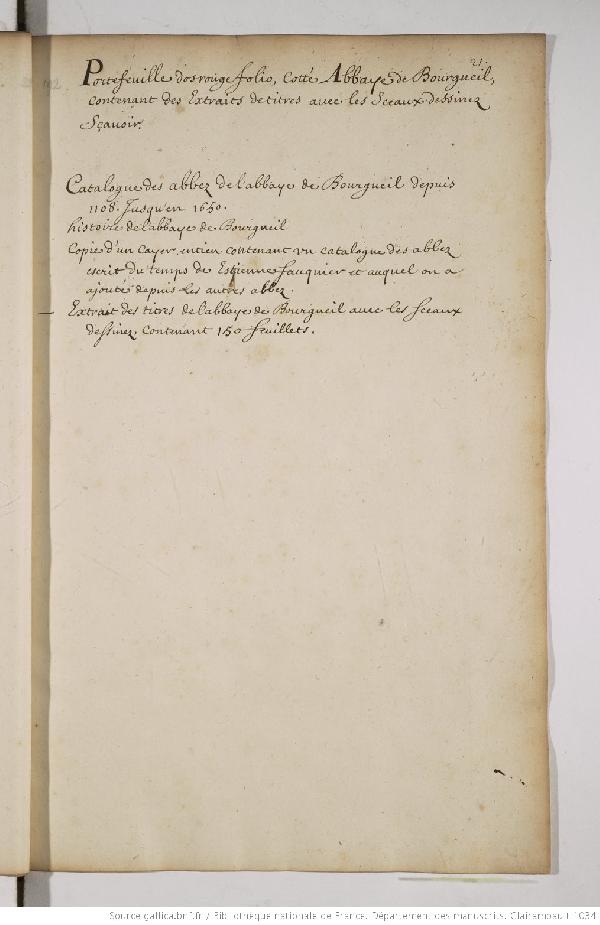 21.
Portefeuille dos rouge folio, Cotté Abbaye de Bourgueil,
contenant des Extraits de titres avec les Sceaux dessinez
Sçavoir.
Catalogue des abbez de l'abbaye de Bourgueil depuis
1108. Jusqu'en 1650.
histoire de l'abbaye de Bourgueil
Copie d'un Cayer entien contenant un catalogue des abbez
escrit du temps de Estienne fauquier et auquel on a
ajouté depuis les autres abbez.
Extrait des titres de l'abbaye de Bourgueil avec les sceaux
dessinez. Contenant 150 feuillets.
Source gallica.bnf.fr / Bibliothèque nationale de France. Département des manuscrits. Clairambault 1034